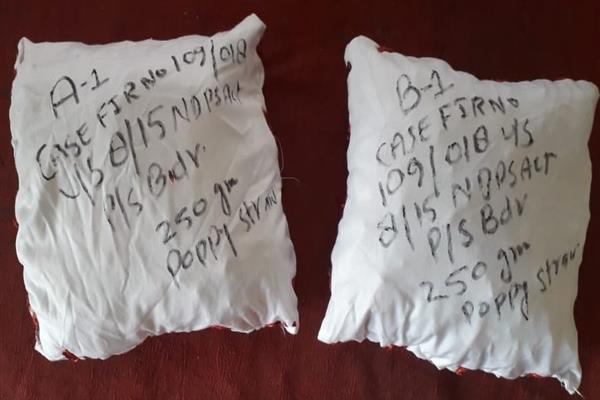 A-1
CASE FIR NO 109/018
U/S 8/15 NDPS Act
P/S Bdr.
250 gm
poppy straw
B-1
CASE FIR NO
109/018 U/S
8/15 NDPS Act
P/S Bdr
250 gm
poppy straw